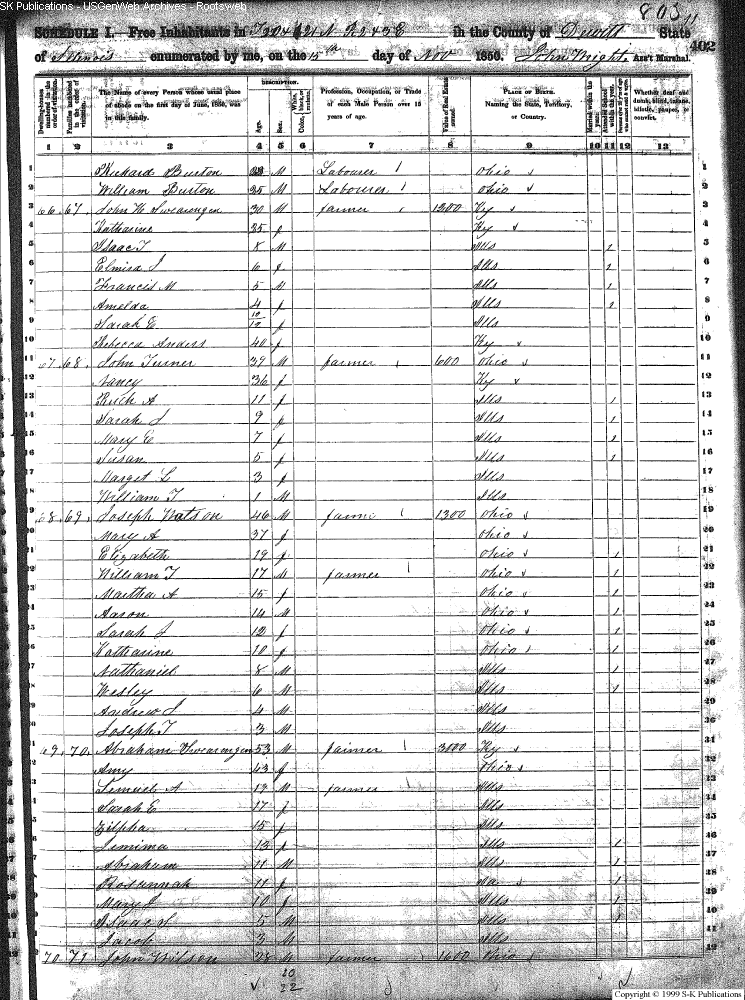 SK Publications - USGenWeb Archives - Rootsweb
803 11
SCHEDULE I.—Free Inhabitants in T20 & 21 N R 2 & 3 E in the County of Dewitt State
of Illinois enumerated by me, on the 15th day of Nov 1850. John Wright Ass't Marshal.
402
Dwelling-houses numbered in the order of visitation.
Families numbered in the order of visitation.
The Name of every Person whose usual place of abode on the first day of June, 1850, was in this family.
DESCRIPTION.
Age.
Sex.
White, black, or mulatto.
Color,
Profession, Occupation, or Trade of each Male Person over 15 years of age.
Value of Real Estate owned.
PLACE OF BIRTH. Naming the State, Territory, or Country.
Married within the year.
Attended School within the year.
Whether deaf and dumb, blind, insane, idiotic, pauper, or convict.
1 2 3 4 5 6 7 8 9 10 11 12 13
1 Richard Burton M Labourer Ohio 1
2 William Burton 25 M Labourer Ohio 2
3 66 67 John H Swearengen 30 M farmer 1200 Ky 3
4 Katharine 25 f Ky 4
5 Isaac T 8 M Ills 1 5
6 Elmira J 6 f Ills 1 6
7 Francis M 5 M Ills 1 7
8 Amelda 4 f Ills 1 8
9 Sarah E 10/12 f Ills 9
10 Rebecca Anders 40 f Ky 10
11 67 68 John Turner 39 M farmer 600 Ohio 11
12 Nancy 36 f Ky 12
13 Ruth A 11 f Ills 1 13
14 Sarah J 9 f Ills 1 14
15 Mary E 7 f Ills 1 15
16 Susan 5 f Ills 1 16
17 Marget L 3 f Ills 17
18 William T 1 M Ills 18
19 68 69 Joseph Watson 46 M farmer 1300 Ohio 19
20 Mary A 37 f Ohio 20
21 Elizabeth 19 f Ohio 1 21
22 William T 17 M farmer Ohio 1 22
23 Martha A 15 f Ohio 1 23
24 Aaron 14 M Ohio 1 24
25 Sarah J 12 f Ohio 1 25
26 Katharine 10 f Ohio 1 26
27 Nathaniel 8 M Ills 1 27
28 Wesley 6 M Ills 1 28
29 Andrew J 4 M Ills 29
30 Joseph T 3 M Ills 30
31 69 70 Abraham Swearengen 53 M farmer 3000 Ky 31
32 Amy 43 f Ohio 32
33 Lemuel A M farmer Ills 33
34 Sarah E 17 f Ills 34
35 Zilpha 15 f Ills 35
36 Jemima f Ills 1 36
37 Abraham 11 M Ills 1 37
38 Rosannah 11 f 1 38
39 Mary J 10 f Ills 1 39
40 Isaac S 5 M Ills 1 40
41 Jacob 3 M Ills 41
42 70 71 John Wilson 28 M farmer 1600 Ohio 42
20
22
Copyright © 1999 S-K Publications